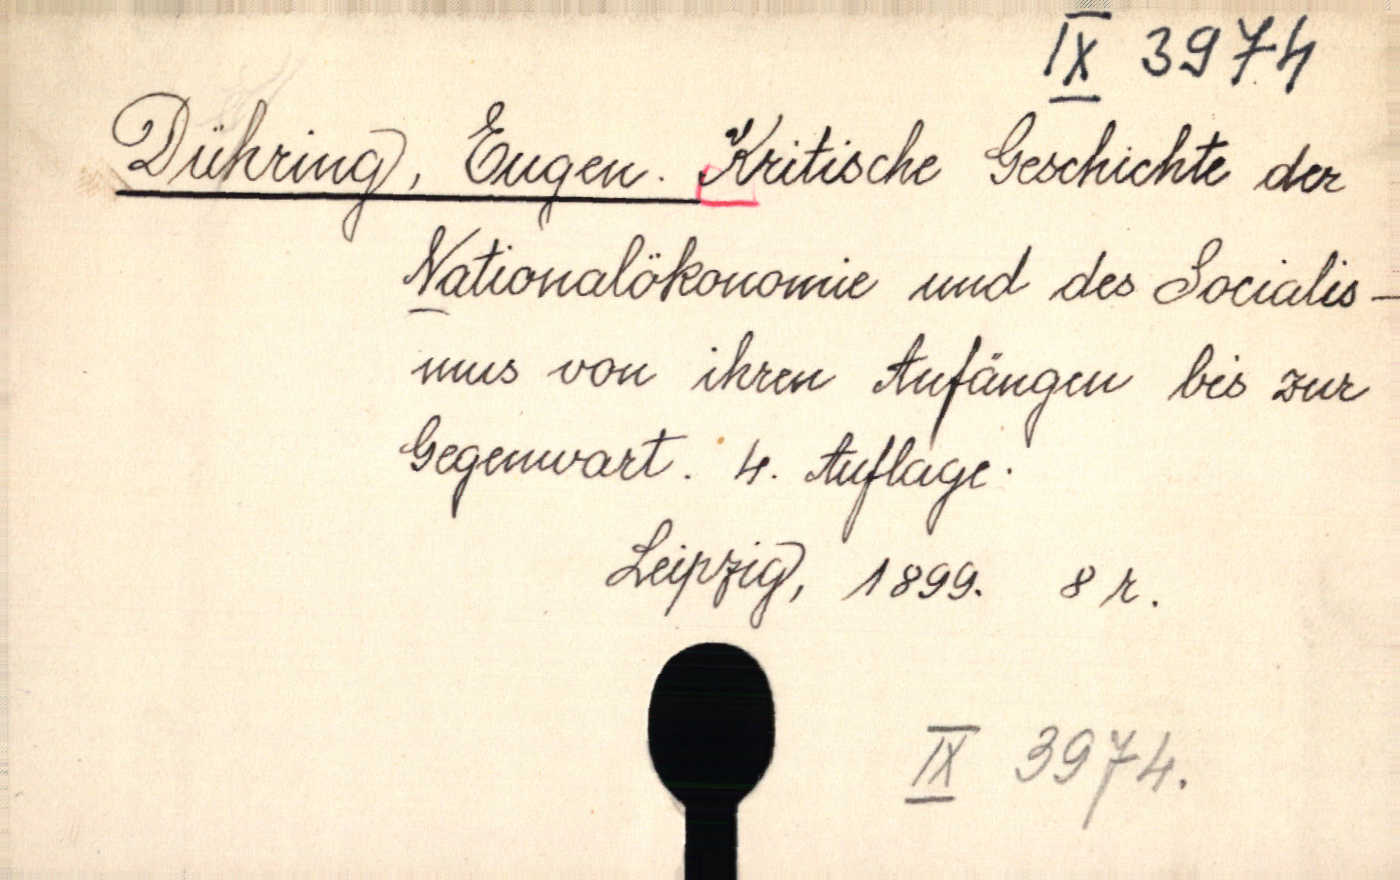 IX 3974
Dühring, Eugen. Kritische Geschichte der
Nationalökonomie und des Socialis-
mus von ihren Anfängen bis zur
Gegenwart. 4. Auflage.
Leipzig, 1899. 8 r.
IX 3974.